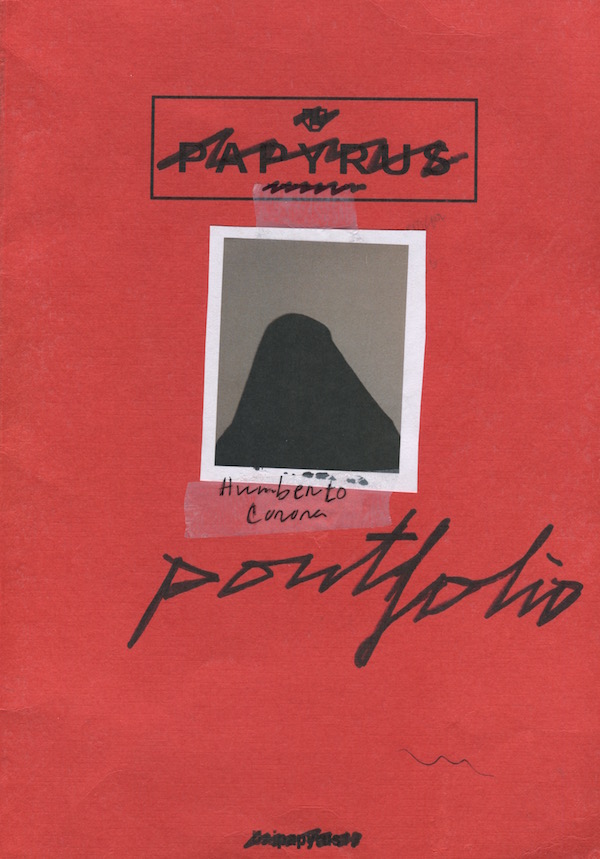 PAPYRUS
Humberto
Corona
portfolio